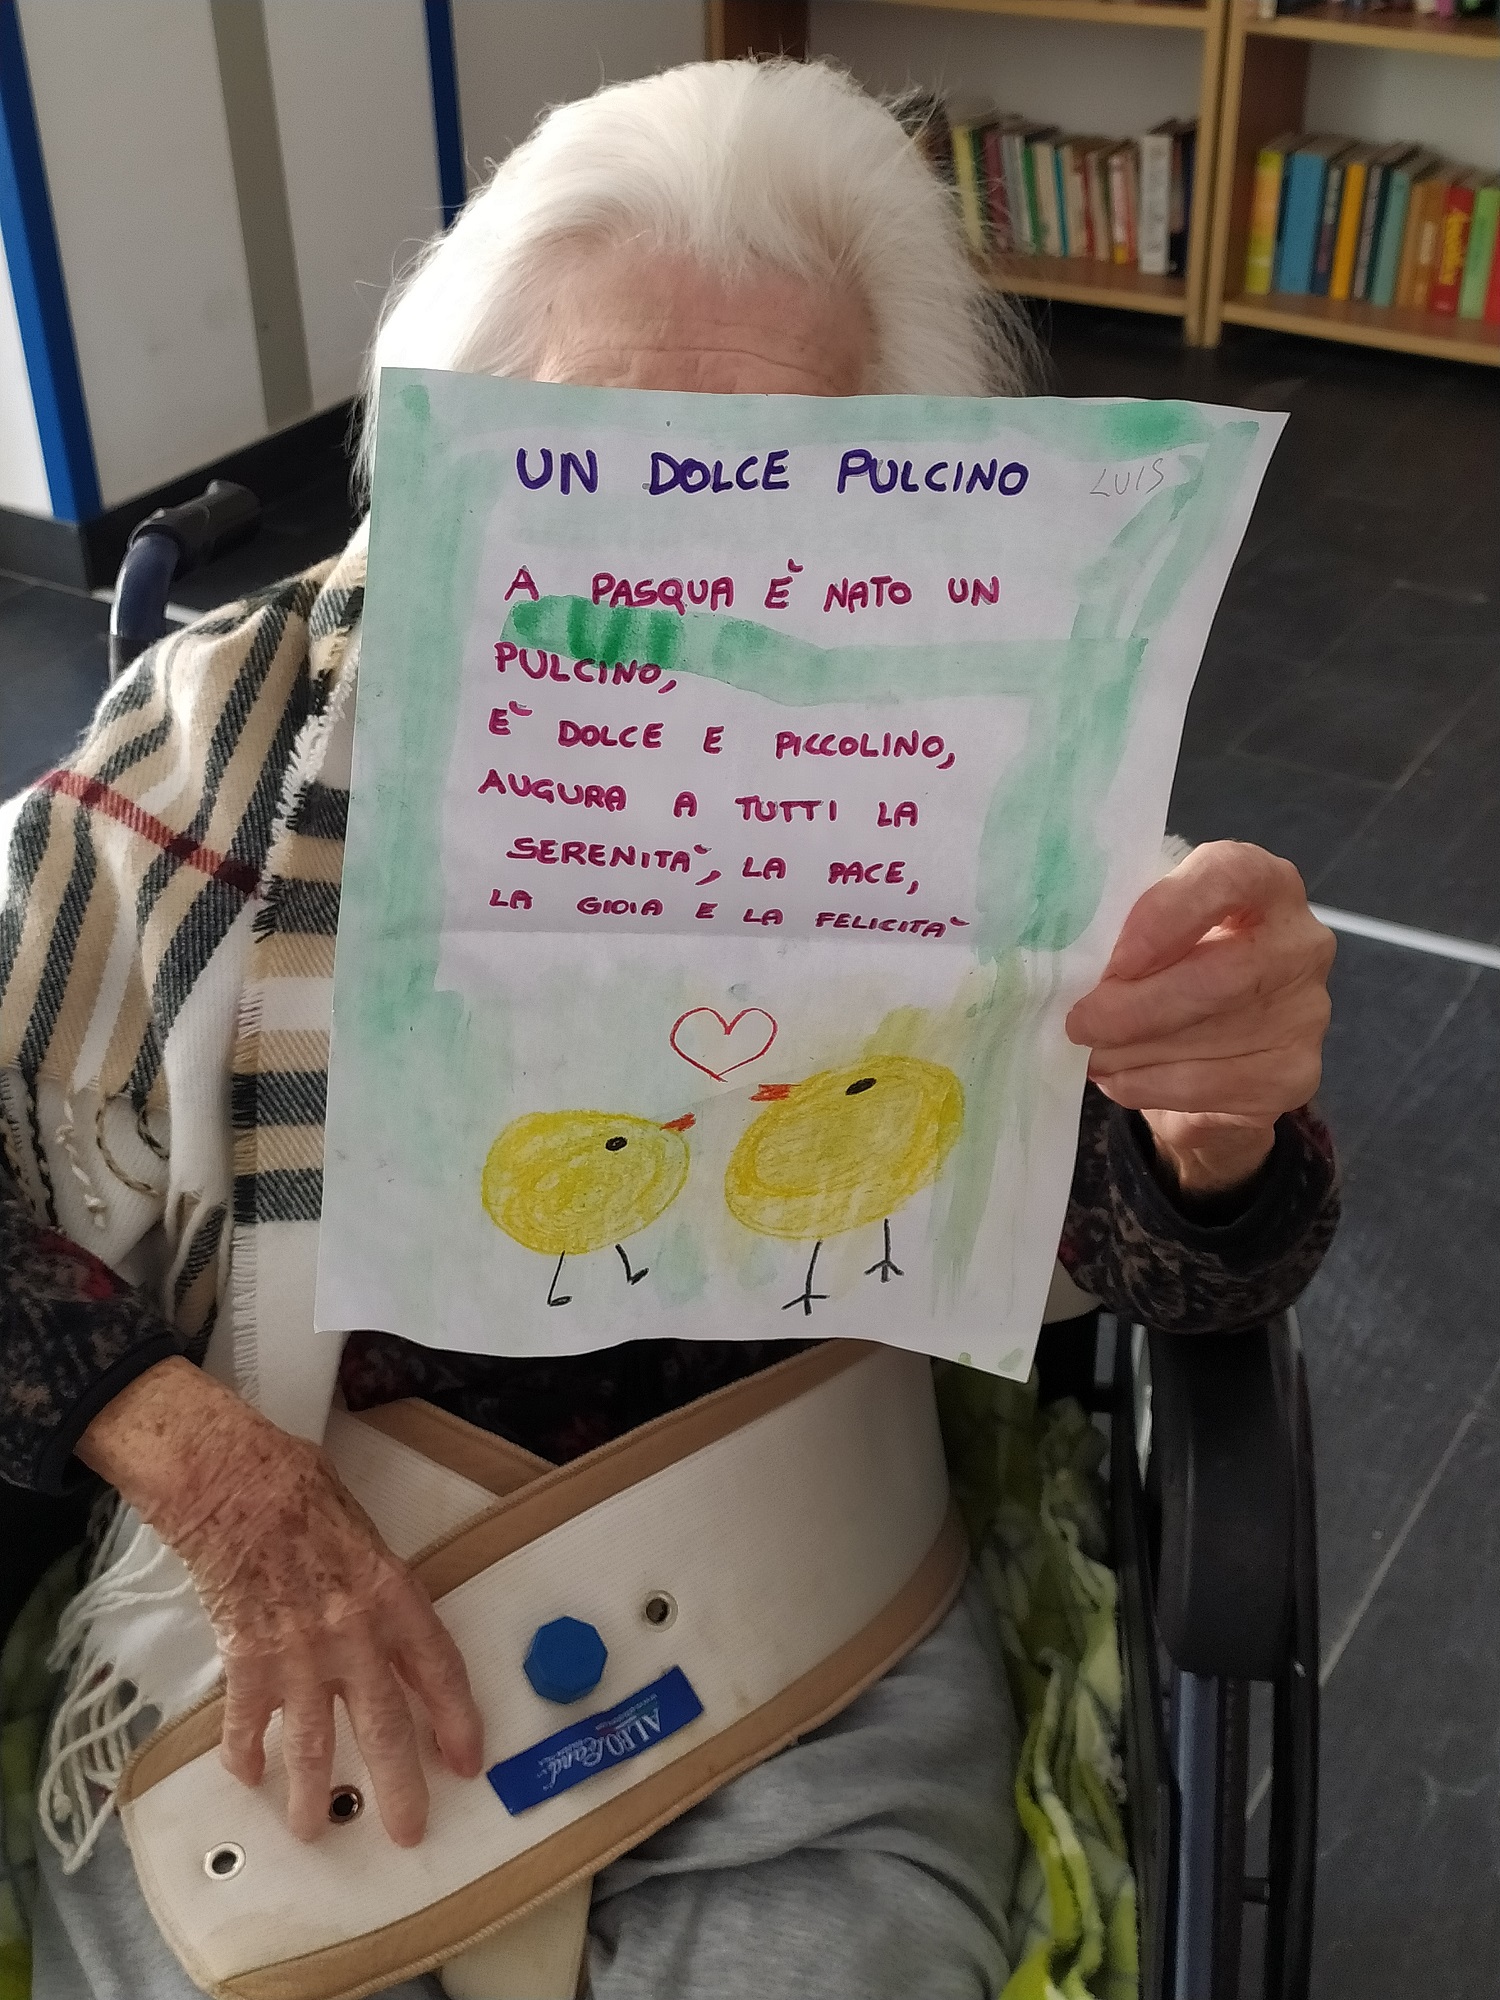 UN DOLCE PULCINO
LUIS
A PASQUA È NATO UN
PULCINO,
È DOLCE E PICCOLINO,
AUGURA A TUTTI LA
SERENITÀ, LA PACE,
LA GIOIA E LA FELICITÀ
ALBO